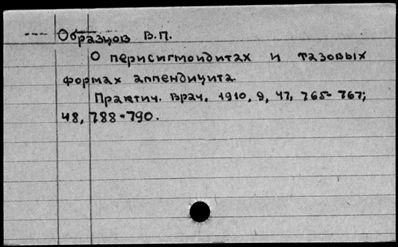 Образцов В.П.
О перисигмоидитах и тазовых
формах аппендицита.
Практич. врач, 1910, 9, 47, 765-767;
48, 788-790.